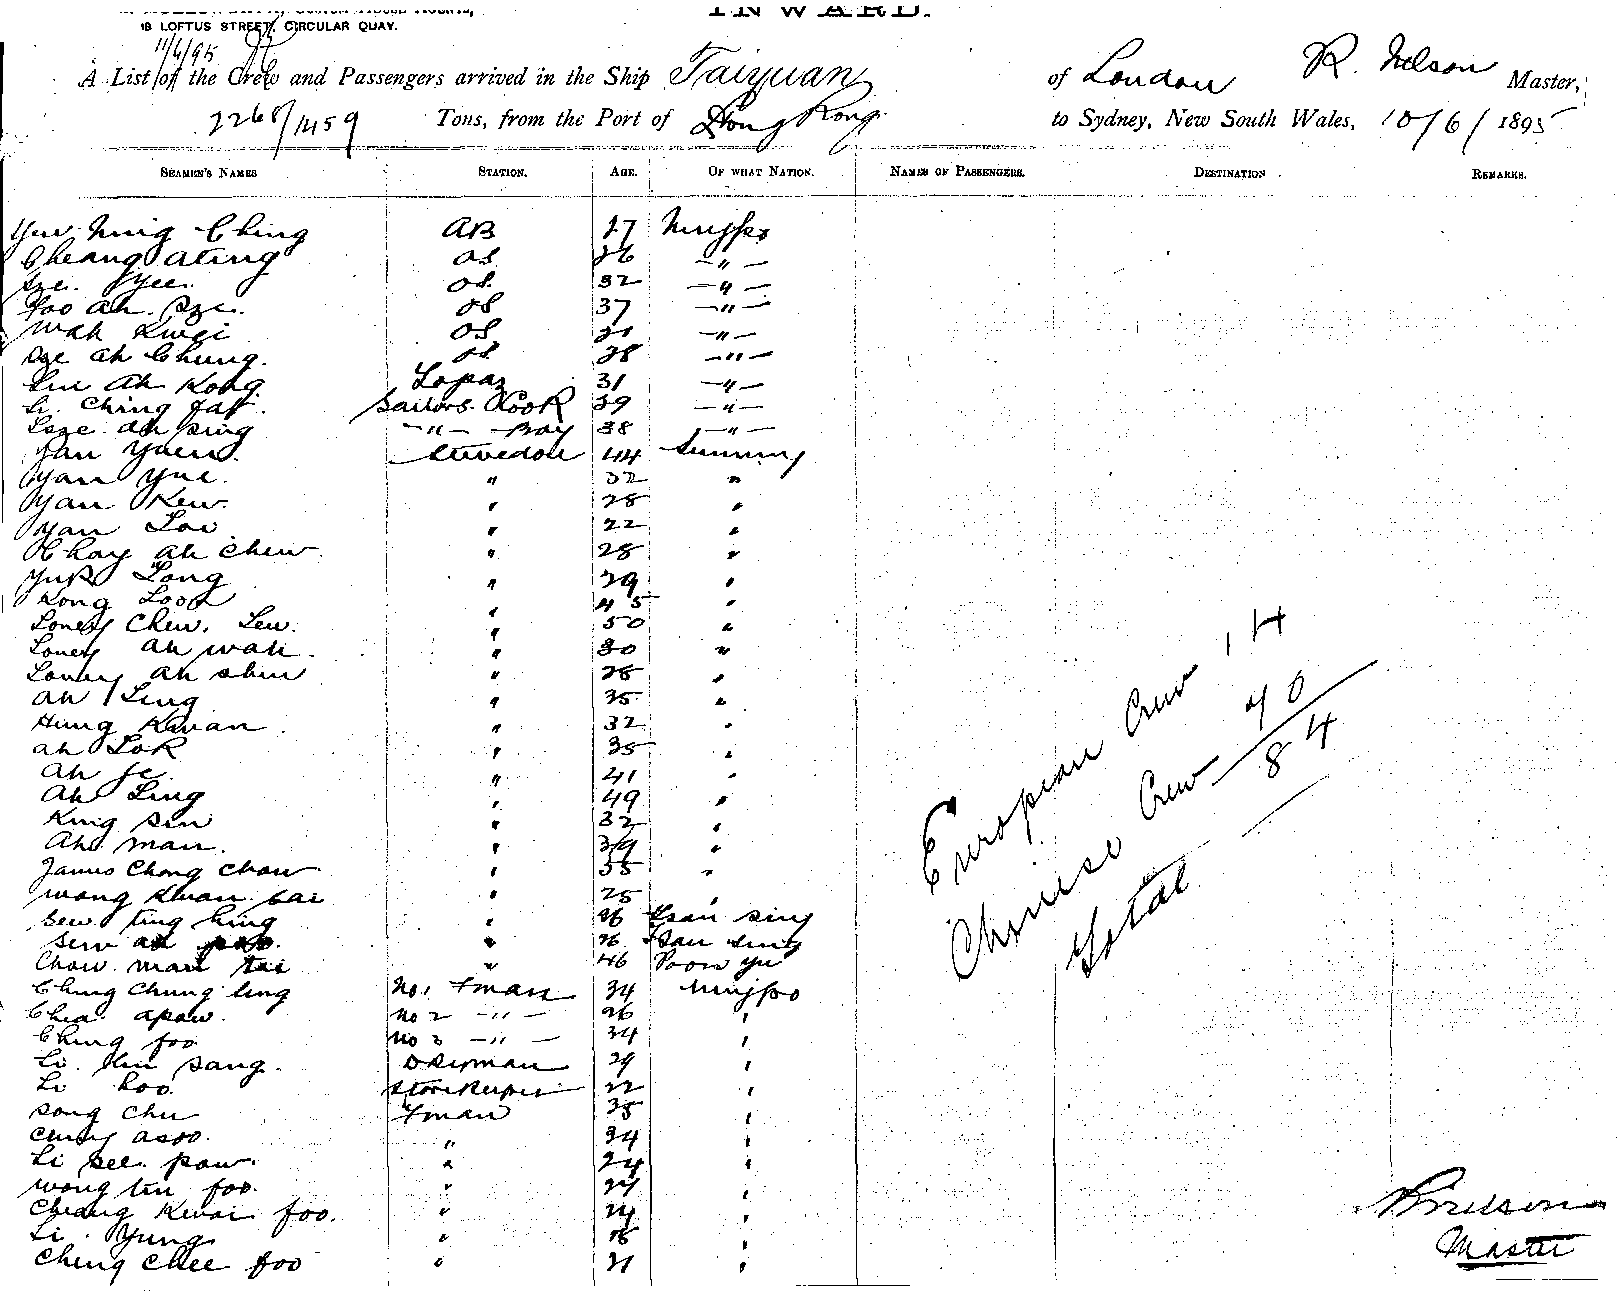 INWARD.
18 LOFTUS STREET, CIRCULAR QUAY.
11/6/95
A List of the Crew and Passengers arrived in the Ship Taiyuan of London R. Nelson Master,
2268/1459 Tons, from the Port of Hong Kong to Sydney, New South Wales, 10/6/1895
SEAMEN'S NAMES STATION. AGE. OF WHAT NATION. NAMES OF PASSENGERS. DESTINATION REMARKS.
Yuu Ning Ching AB 27 Ningpo
Cheang Ating OS 26 -"-
Sze Yee OS 32 -"-
Foo Ah Sze OS 37 -"-
Wah Kwei OS 31 -"-
Sze Ah Chung. OS 28 -"-
Liu Ah Kong Lopaz 31 -"-
Li Ching Fat. Sailors Cook 39 -"-
Loze Ah Sing -"- Boy 38 -"-
Yan Yuen Stevedore 44 Sunning
Yan Yue. " 32 "
Yan Kew. " 28 "
Yan Loo " 22 "
Chay Ah Chew " 28 "
Yuk Long " 29 "
Kong Loon " 45 "
Loney Chew. Lew. " 50 "
Loney Ah Wah. " 30 "
Loney Ah Shin " 28 "
Ah Ling " 35 "
Hung Kwan " 32 "
Ah Lok " 35 "
Ah Je. " 41 "
Ah Ling " 49 "
King Sin " 32 "
Ah Man. " 39 "
James Chong Chow " 35 "
Wong Kwan Sai " 25 "
Sew Ting Hing " 26 Tsan Sing
Sew Ah " 26 Tsan Sing
Chow Man Tai " 46 Poon Yu
Ching Chung Ling No. 1 Fman 34 Ningpo
Chea Apaw. No 2 -"- 26 "
Ching Foo No 3 -"- 34 "
Li Kin Sang. Donkeyman 29 "
Li Koo. Storekeeper 22 "
Song Chu Fman 35 "
Ching Asoo. " 34 "
Li See Paw. " 24 "
Wong Tin Foo. " 27 "
Cheang Kwai Foo. " 24 "
Li Yung " 26 "
Ching Chee Foo " 31 "
European Crew 14
Chinese Crew 70
Total 84
R Nelson
Master